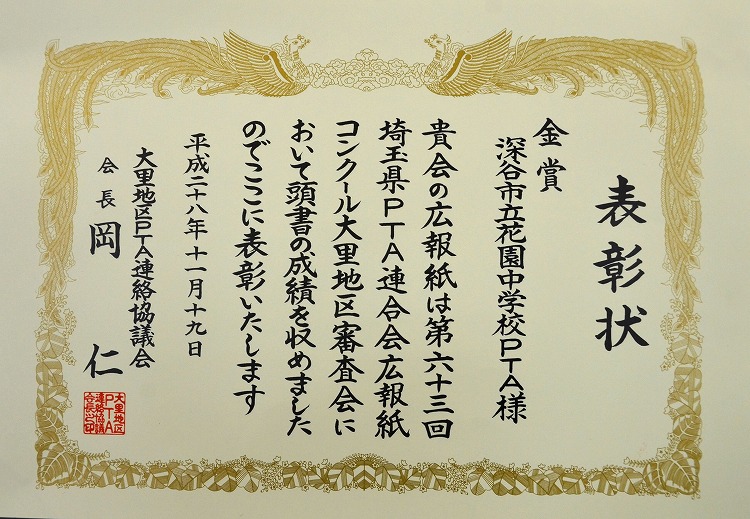 表彰状
金賞
深谷市立花園中学校PTA様
貴会の広報紙は第六十三回
埼玉県PTA連合会広報紙
コンクール大里地区審査会に
おいて頭書の成績を収めました
のでここに表彰いたします
平成二十八年十一月十九日
大里地区PTA連絡協議会
会長 岡 仁
大里地区
PTA
連絡協議
会長之印